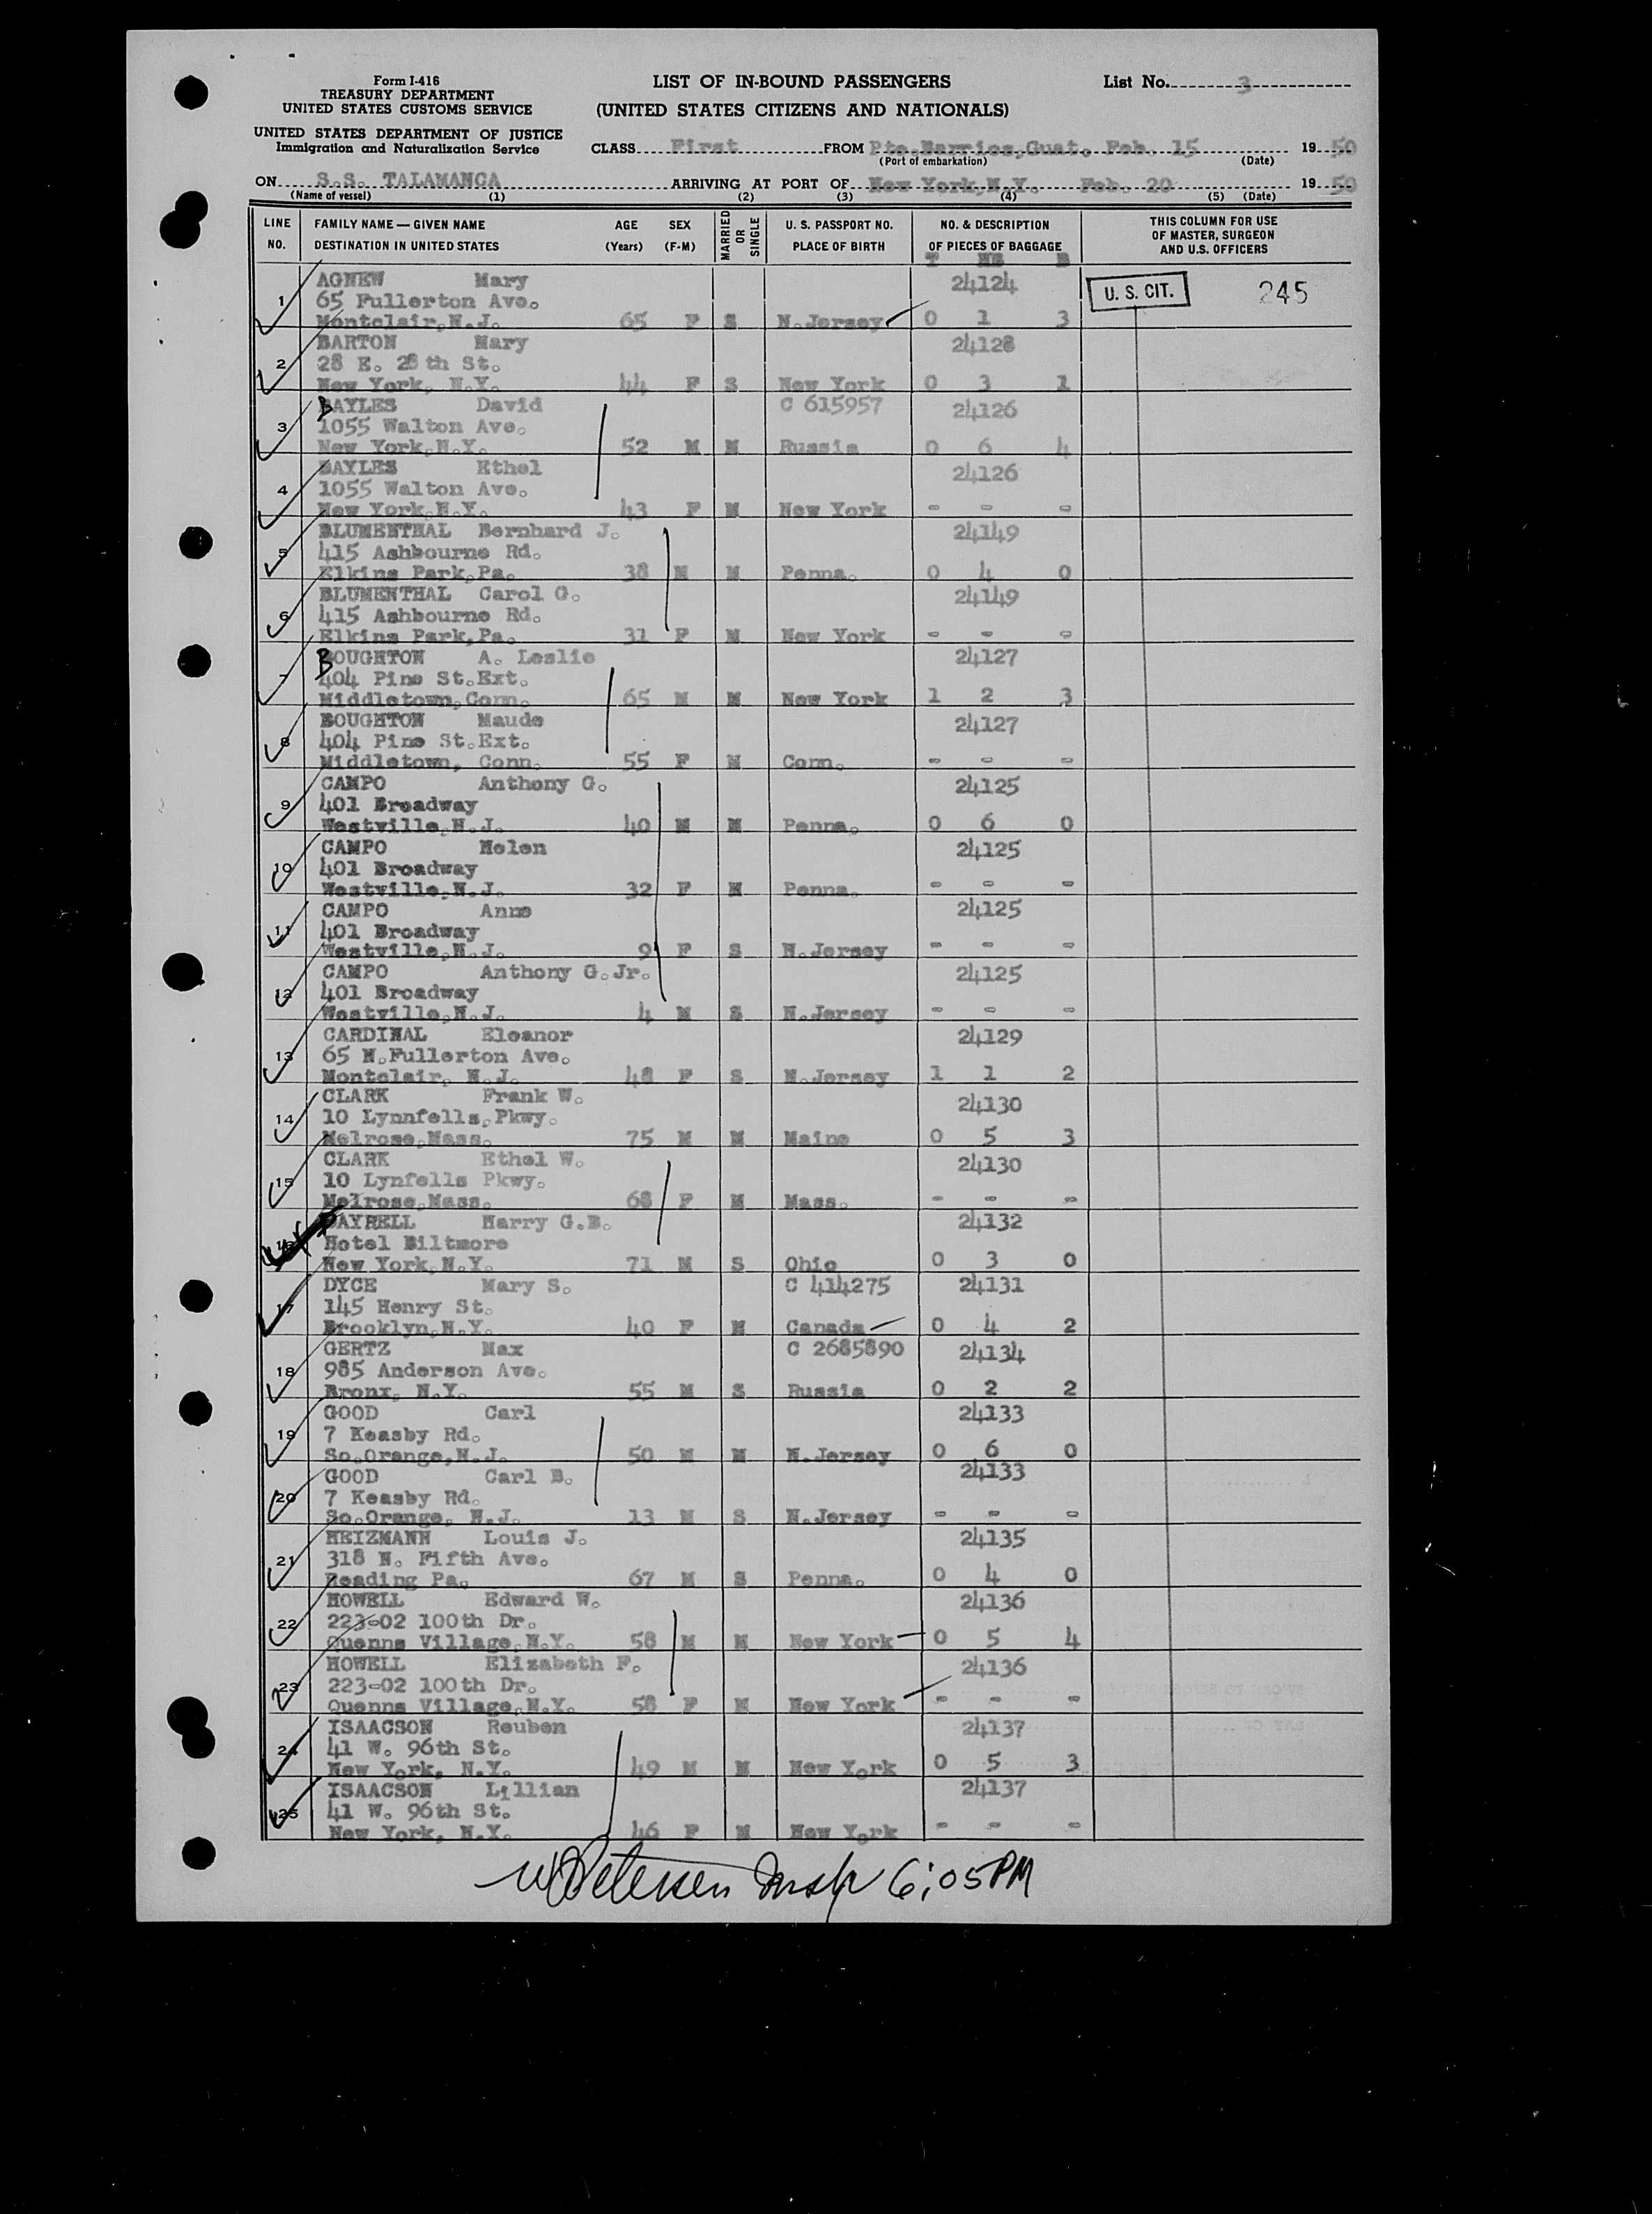 Form I-416
TREASURY DEPARTMENT
UNITED STATES CUSTOMS SERVICE
UNITED STATES DEPARTMENT OF JUSTICE
Immigration and Naturalization Service
LIST OF IN-BOUND PASSENGERS
(UNITED STATES CITIZENS AND NATIONALS)
List No. 3
CLASS First FROM Pto.Barrios,Guat. Feb. 15 19 50
(Port of embarkation) (Date)
ON S.S. TALAMANCA ARRIVING AT PORT OF New York,N.Y. Feb. 20 19 50
(Name of vessel) (1) (2) (3) (4) (5) (Date)
LINE NO. FAMILY NAME — GIVEN NAME DESTINATION IN UNITED STATES AGE (Years) SEX (F-M) MARRIED OR SINGLE U. S. PASSPORT NO. PLACE OF BIRTH NO. & DESCRIPTION OF PIECES OF BAGGAGE THIS COLUMN FOR USE OF MASTER, SURGEON AND U.S. OFFICERS
T HB B
1 AGNEW Mary 24124 U. S. CIT. 245
65 Fullerton Ave.
Montclair,N.J. 65 F S N.Jersey 0 1 3
2 BARTON Mary 24128
28 E. 28th St.
New York, N.Y. 44 F S New York 0 3 1
3 BAYLES David C 615957 24126
1055 Walton Ave.
New York,N.Y. 52 M M Russia 0 6 4
4 BAYLES Ethel 24126
1055 Walton Ave.
New York,N.Y. 43 F M New York - - -
5 BLUMENTHAL Bernhard J. 24149
415 Ashbourne Rd.
Elkins Park,Pa. 38 M M Penna. 0 4 0
6 BLUMENTHAL Carol G. 24149
415 Ashbourne Rd.
Elkins Park,Pa. 31 F M New York - - -
7 BOUGHTON A. Leslie 24127
404 Pine St.Ext.
Middletown,Conn. 65 M M New York 1 2 3
8 BOUGHTON Maude 24127
404 Pine St.Ext.
Middletown, Conn. 55 F M Conn. - - -
9 CAMPO Anthony G. 24125
401 Broadway
Westville,N.J. 40 M M Penna. 0 6 0
10 CAMPO Helen 24125
401 Broadway
Westville,N.J. 32 F M Penna. - - -
11 CAMPO Anne 24125
401 Broadway
Westville,N.J. 9 F S N.Jersey - - -
12 CAMPO Anthony G.Jr. 24125
401 Broadway
Westville,N.J. 4 M S N.Jersey - - -
13 CARDINAL Eleanor 24129
65 N.Fullerton Ave.
Montclair, N.J. 48 F S N.Jersey 1 1 2
14 CLARK Frank W. 24130
10 Lynnfells,Pkwy.
Melrose,Mass. 75 M M Maine 0 5 3
15 CLARK Ethel W. 24130
10 Lynfells Pkwy.
Melrose,Mass. 68 F M Mass. - - -
16 DAYRELL Harry G.B. 24132
Hotel Biltmore
New York,N.Y. 71 M S Ohio 0 3 0
17 DYCE Mary S. C 414275 24131
145 Henry St.
Brooklyn,N.Y. 40 F M Canada 0 4 2
18 GERTZ Max C 2685890 24134
985 Anderson Ave.
Bronx, N.Y. 55 M S Russia 0 2 2
19 GOOD Carl 24133
7 Keasby Rd.
So.Orange,N.J. 50 M M N.Jersey 0 6 0
20 GOOD Carl B. 24133
7 Keasby Rd.
So.Orange, N.J. 13 M S N.Jersey - - -
21 HEIZMANN Louis J. 24135
318 N. Fifth Ave.
Reading Pa. 67 M S Penna. 0 4 0
22 HOWELL Edward W. 24136
223-02 100th Dr.
Quenns Village,N.Y. 58 M M New York 0 5 4
23 HOWELL Elizabeth F. 24136
223-02 100th Dr.
Quenns Village,N.Y. 58 F M New York - - -
24 ISAACSON Reuben 24137
41 W. 96th St.
New York, N.Y. 49 M M New York 0 5 3
25 ISAACSON Lillian 24137
41 W. 96th St.
New York, N.Y. 46 F M New York - - -
W Petersen Insp 6:05PM